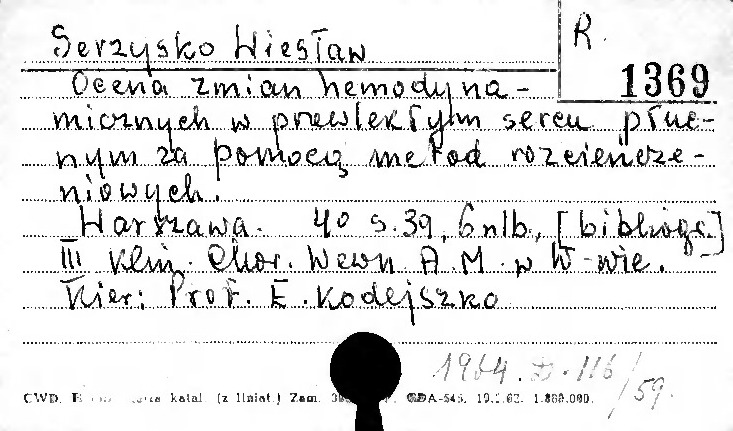 Serzysko Wiesław
R.
1369
Ocena zmian hemodyna-
micznych w przewlekłym sercu płuc-
nym za pomocą metod rozcieńcze-
niowych.
Warszawa. 4° s.39, 6 nlb., [bibliogr.]
III Klin. Chor. Wewn A.M. w W-wie.
Kier: Prof. E. Kodejszko
1964. D. 116/59.
CWD. katal. (z liniat.) Zam. GDA-545. 1.800.000.